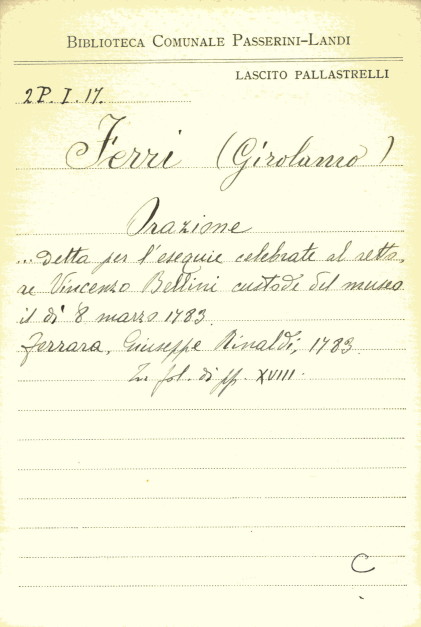 BIBLIOTECA COMUNALE PASSERINI-LANDI
LASCITO PALLASTRELLI
2P. I. 17.
Ferri (Girolamo)
Orazione
... detta per l'esequie celebrate al retto-
re Vincenzo Bellini custode del museo
il dì 8 marzo 1783.
Ferrara, Giuseppe Rinaldi, 1783.
In fol. di pp. XVIII.
C